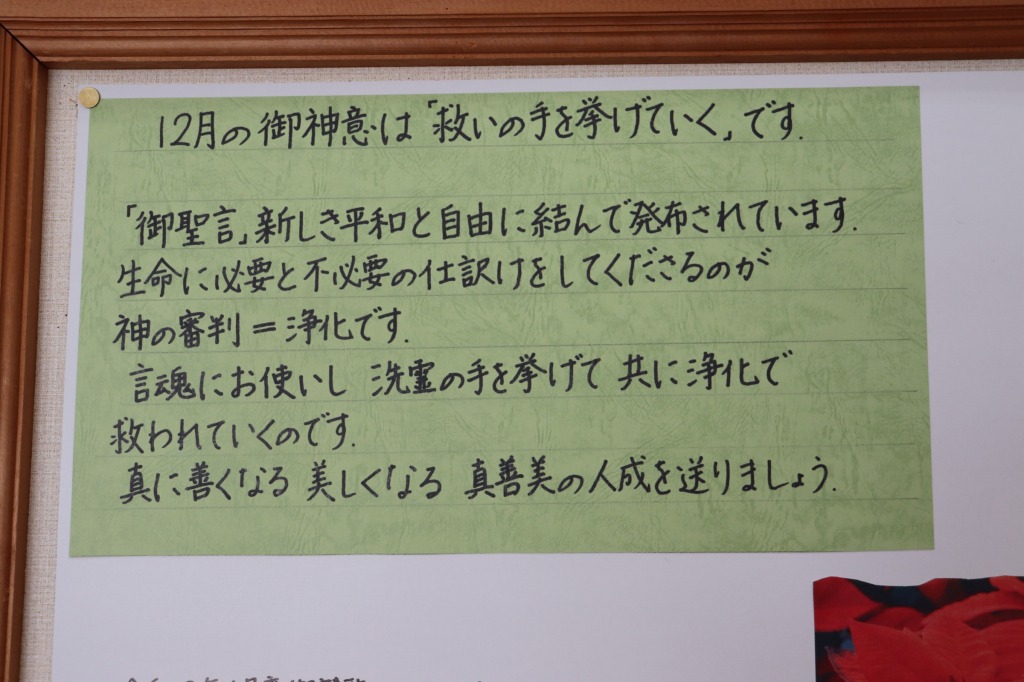 12月の御神意は「救いの手を挙げていく」です.
「御聖言」新しき平和と自由に結んで発布されています.
生命に必要と不必要の仕訳けをしてくださるのが
神の審判=浄化です.
言魂にお使いし 洗霊の手を挙げて 共に浄化で
救われていくのです.
真に善くなる 美しくなる 真善美の人成を送りましょう.